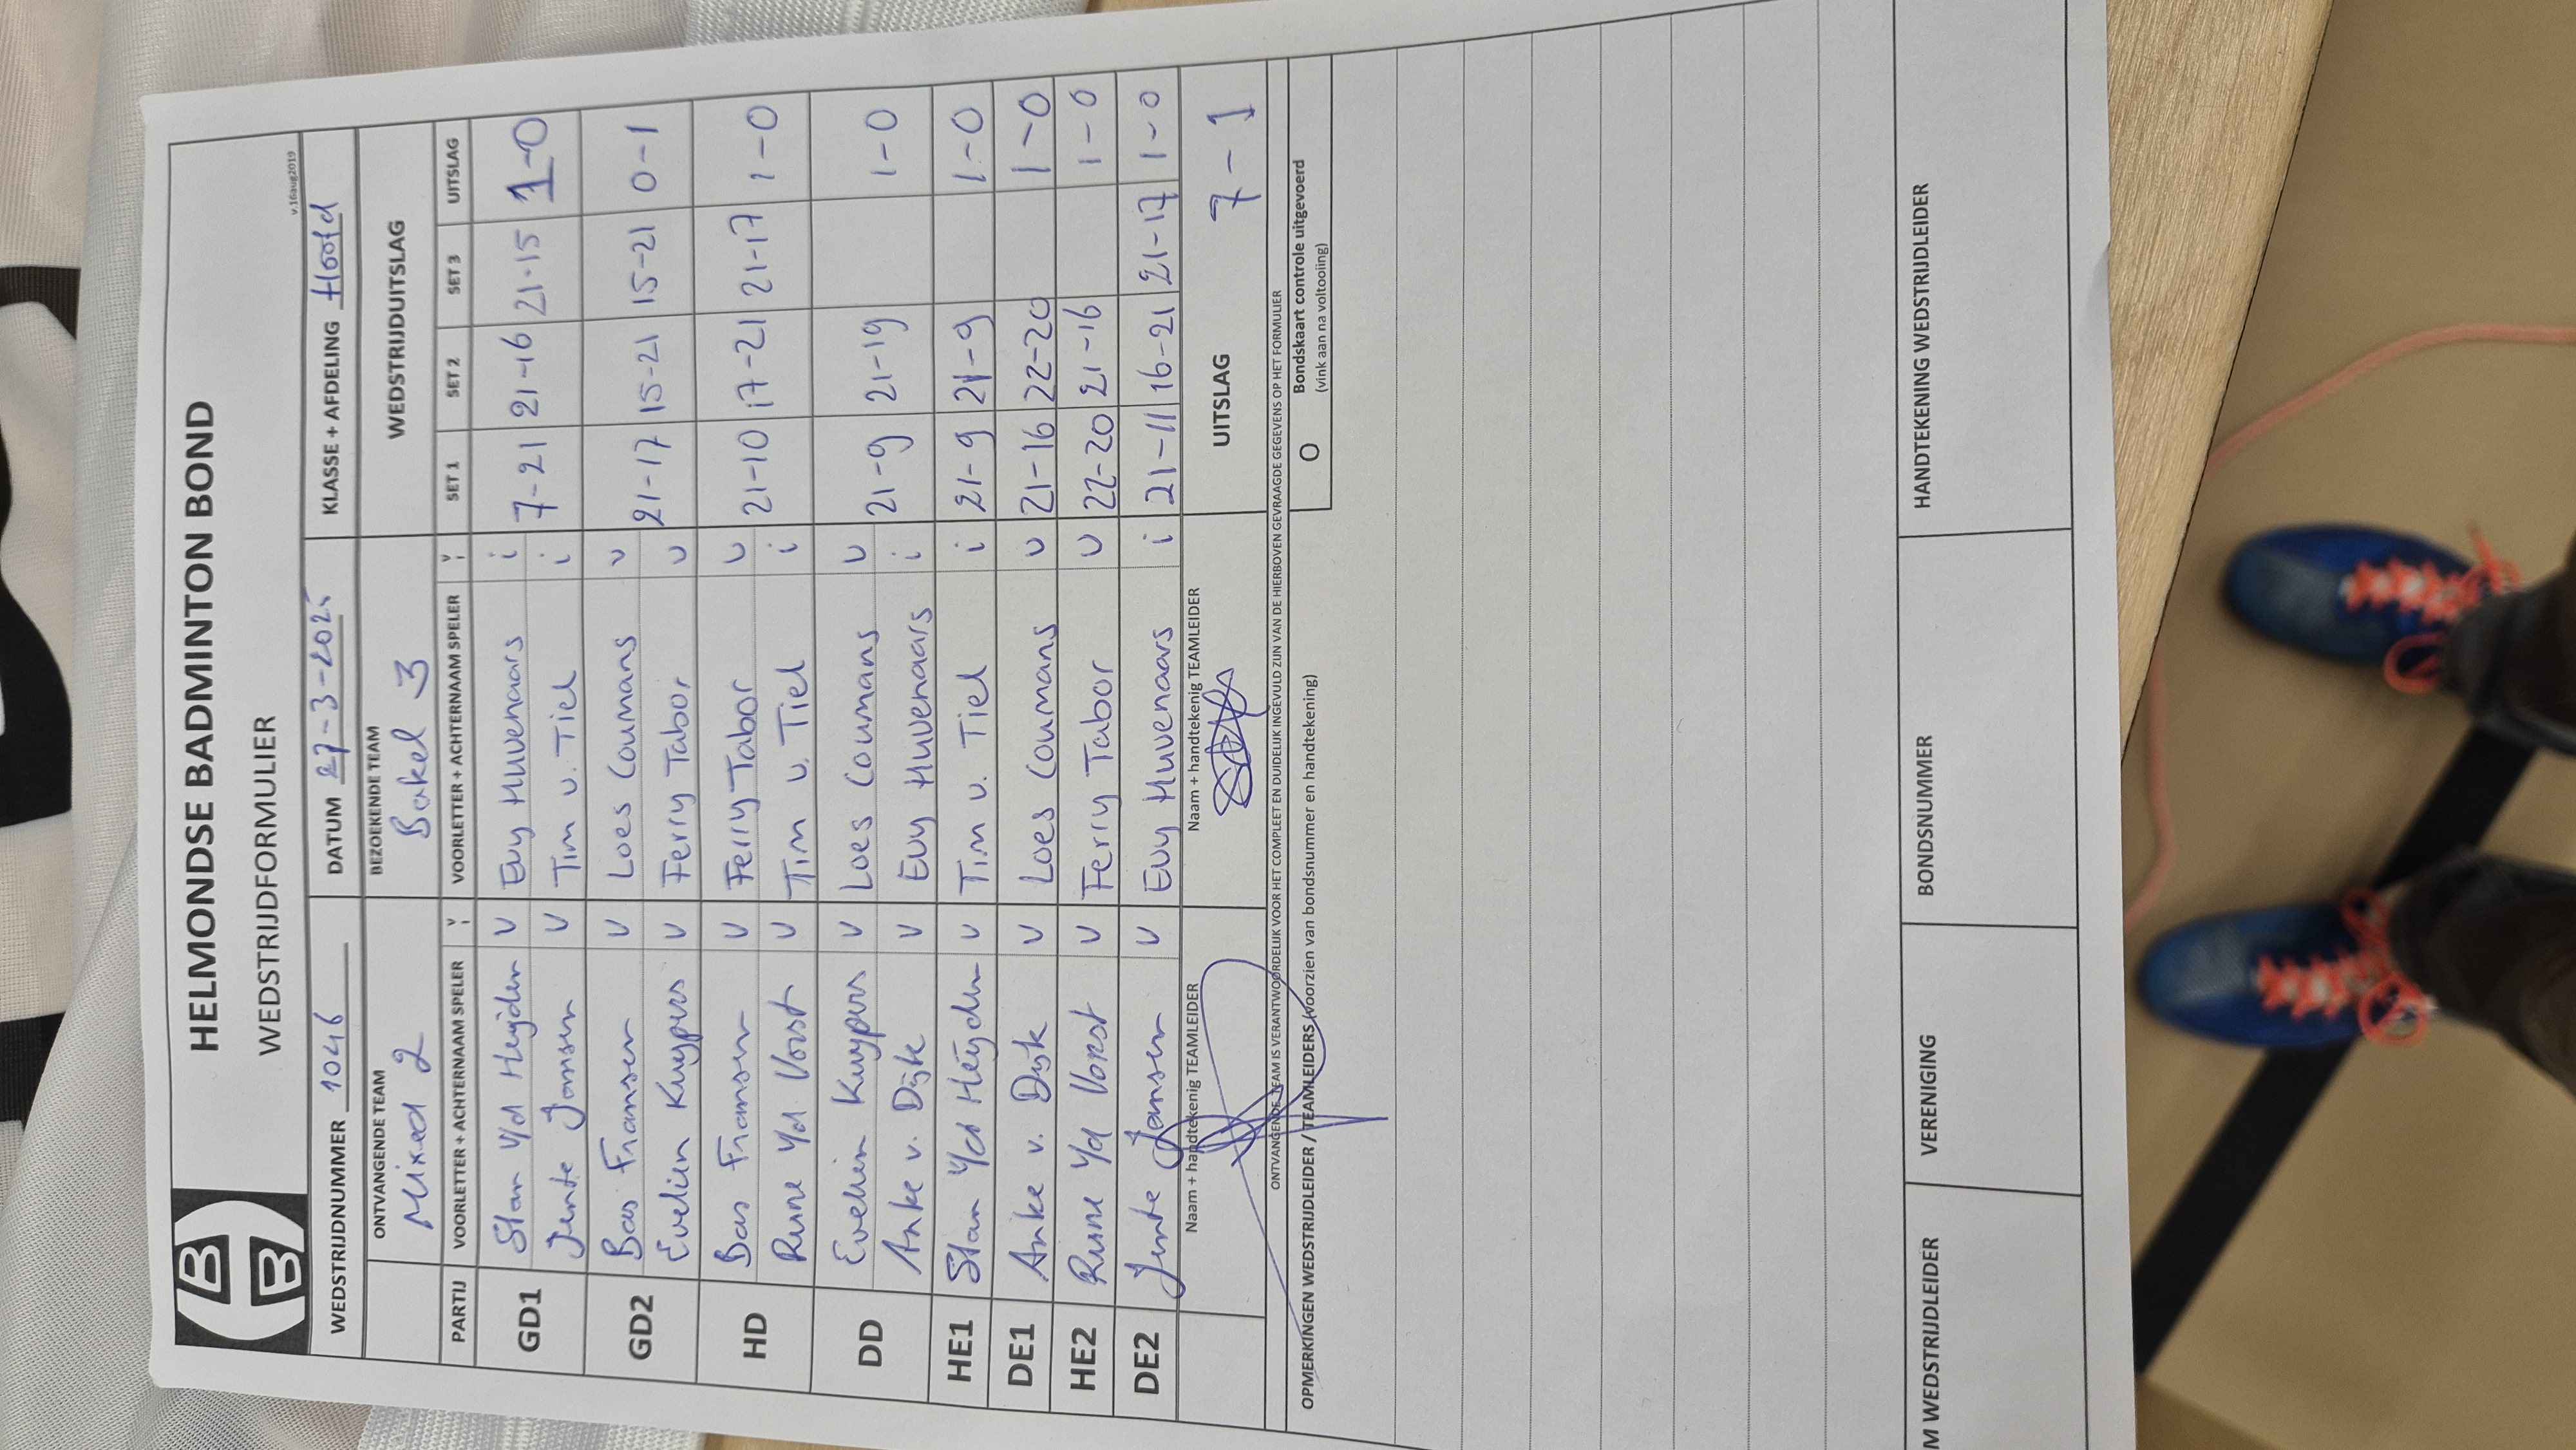 HELMONDSE BADMINTON BOND
WEDSTRIJDFORMULIER
v.16aug2019
WEDSTRIJDNUMMER 1046 DATUM 27-3-2025 KLASSE + AFDELING Hoofd
ONTVANGENDE TEAM BEZOEKENDE TEAM WEDSTRIJDUITSLAG
Mixed 2 Bakel 3
PARTIJ VOORLETTER + ACHTERNAAM SPELER V/I VOORLETTER + ACHTERNAAM SPELER V/I SET 1 SET 2 SET 3 UITSLAG
GD1 Stan v/d Heijden V Evy Huvenaars i 7-21 21-16 21-15 1-0
Jente Jansen V Tim v. Tiel i
GD2 Bas Fransen V Loes Coumans V 21-17 15-21 15-21 0-1
Evelien Kuypers V Ferry Tabor V
HD Bas Fransen V Ferry Tabor V 21-10 17-21 21-17 1-0
Rune v/d Vorst V Tim v. Tiel i
DD Evelien Kuypers V Loes Coumans V 21-9 21-19 1-0
Anke v. Dijk V Evy Huvenaars i
HE1 Stan v/d Heijden V Tim v. Tiel i 21-9 21-9 1-0
DE1 Anke v. Dijk V Loes Coumans V 21-16 22-20 1-0
HE2 Rune v/d Vorst V Ferry Tabor V 22-20 21-16 1-0
DE2 Jente Jansen V Evy Huvenaars i 21-11 16-21 21-17 1-0
Naam + handtekenig TEAMLEIDER Naam + handtekenig TEAMLEIDER UITSLAG 7-1
ONTVANGENDE TEAM IS VERANTWOORDELIJK VOOR HET COMPLEET EN DUIDELIJK INGEVULD ZIJN VAN DE HIERBOVEN GEVRAAGDE GEGEVENS OP HET FORMULIER
OPMERKINGEN WEDSTRIJDLEIDER / TEAMLEIDERS (voorzien van bondsnummer en handtekening) O Bondskaart controle uitgevoerd
(vink aan na voltooiing)
M WEDSTRIJDLEIDER VERENIGING BONDSNUMMER HANDTEKENING WEDSTRIJDLEIDER